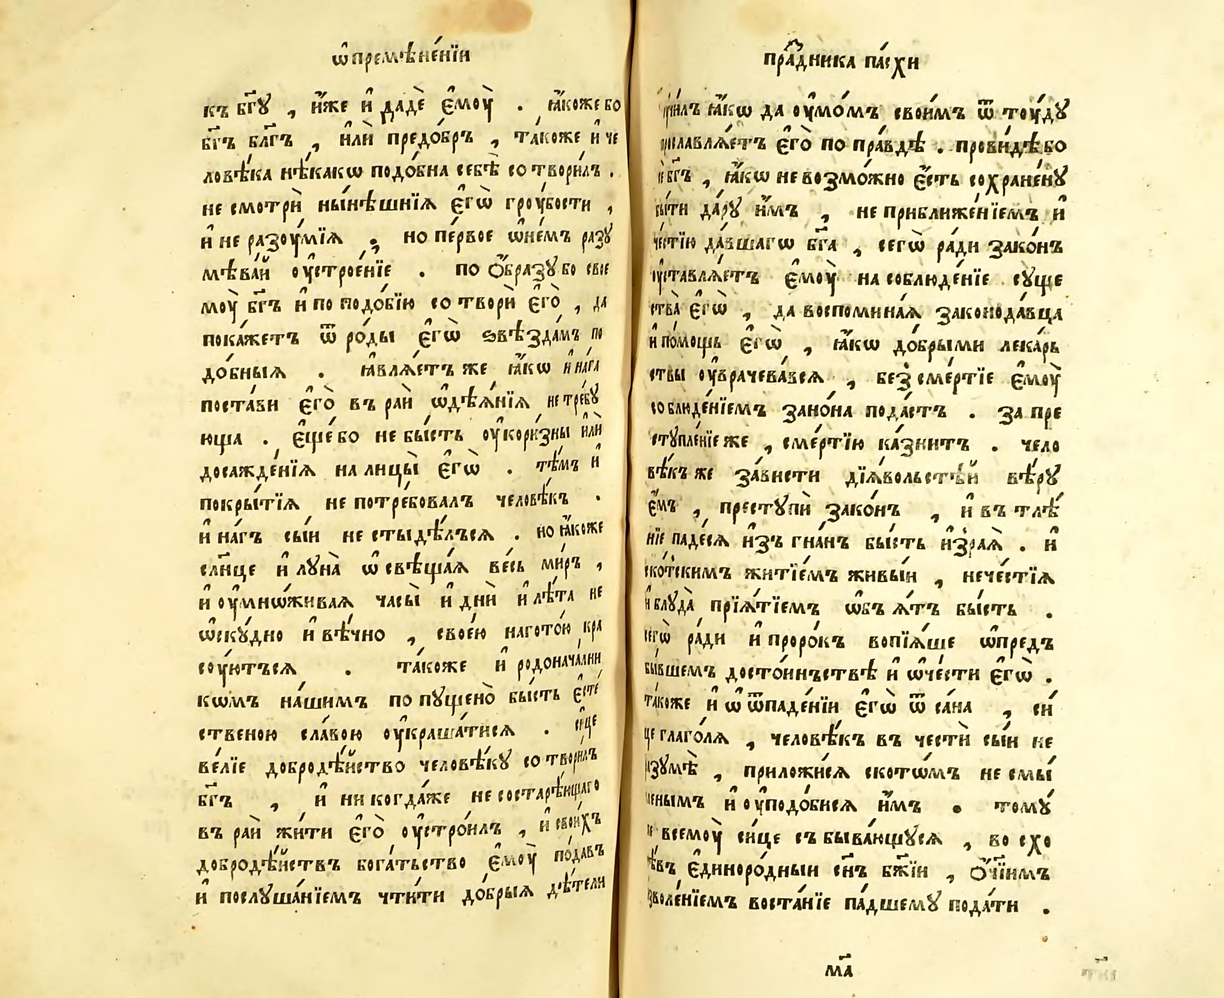 ѡ҆премѣне́нїи
къ бг҃ꙋ , и҆́же и҆ дадѐ є҆моꙋ̀ . ꙗ҆́коже бо
бг҃ъ бл҃гъ , и҆лѝ предо́бръ , та́коже и҆ че
ловѣ́ка нѣ́какѡ подо́бна себѣ̀ сотвори́лъ .
не смотрѝ ны́нѣшнїѧ є҆гѡ̀ гроу́бости ,
и҆ не разоу́мїѧ , но пе́рвое ѡ҆не́мъ разꙋ
мѣва́й оу҆строе́нїе . по ѻ҆́бразꙋ бо свое
моу̀ бг҃ъ и҆ по подо́бїю сотворѝ є҆го̀ , да
пока́жетъ ѿ ро́ды є҆гѡ̀ ѕвѣзда́мъ по
до́бныѧ . ꙗ҆влѧ́етъ же ꙗ҆́кѡ и҆ на́га
поста́ви є҆го̀ въ раѝ ѡ҆дѣѧ́нїѧ не тре́бꙋ
юща . є҆ще́ бо не бы́сть оу҆кори́зны и҆лѝ
досажде́нїѧ на лицы̀ є҆гѡ̀ . тѣ́мъ и҆
покры́тїѧ не потре́бовалъ человѣ́къ .
и҆ на́гъ сы́и не стыдѣ́лъсѧ . но ꙗ҆́коже
сл҃нце и҆ лꙋна̀ ѡ҆свѣща́ѧ ве́сь ми́ръ ,
и҆ оу҆мнѡ́живаѧ часы̀ и҆ дни̂ и҆ лѣ́та не
ѡ҆скꙋ́дно и҆ вѣ́чно , свое́ю нагото́ю кра
сꙋ́ютъсѧ . та́коже и҆ родонача́лни
кѡмъ на́шимъ попꙋщено̀ бы́сть є҆сте́
ственою сла́вою оу҆краша́тисѧ . си́це
ве́лїе добродѣ́йство человѣ́кꙋ сотвори́лъ
бг҃ъ , и҆ никогда́же не состарѣ́ющаго
въ раѝ жи́ти є҆го̀ оу҆стро́илъ , и҆ свои́хъ
добродѣ́йствъ бога́тьство є҆моу̀ пода́въ
и҆ послꙋша́нїемъ чти́ти до́брыѧ дѣ́тели
пра́здника па́схи
ꙗ҆́кѡ да оу҆мо́мъ свои́мъ ѿ тоу́дꙋ
прославлѧ́етъ є҆го̀ по пра́вдѣ . прови́дѣ бо
бг҃ъ , ꙗ҆́кѡ не возмо́жно є҆́сть сохране́нꙋ
бы́ти да́рꙋ и҆́мъ , не приближе́нїемъ и҆
че́стїю да́вшагѡ бг҃а , сегѡ̀ ра́ди зако́нъ
оу҆ставлѧ́етъ є҆моу̀ на соблюде́нїе сꙋще
ства̀ є҆гѡ̀ , да воспомина́ѧ законода́вца
и҆ по́мощь є҆гѡ̀ , ꙗ҆́кѡ до́брыми лека́рь
ствы оу҆врачева́всѧ , безсме́ртїе є҆моу̀
соблюде́нїемъ зако́на пода́стъ . за пре
стꙋпле́нїе же , сме́ртїю ка́знитъ . чело
вѣ́къ же за́висти дїѧ́вольстѣй вѣ́рꙋ
є҆́мъ , престꙋпѝ зако́нъ , и҆ въ тлѣ́
нїе паде́сѧ и҆зъгна́нъ бы́сть и҆зъраѧ̀ . и҆
ско́тскимъ житїе́мъ живы́и , нече́стїѧ
и҆ блꙋ́да прїѧ́тїемъ ѡ҆бъѧ́тъ бы́сть .
сегѡ̀ ра́ди и҆ проро́къ вопїѧ́ше ѡ҆ предъ
бы́вшемъ досто́инъствѣ и҆ ѡ҆ че́сти є҆гѡ̀ .
та́коже и҆ ѡ҆ ѿпаде́нїи є҆гѡ̀ ѿ са́на , си́
це глаго́лѧ , человѣ́къ въ честѝ сы́и не
разꙋмѣ̀ , приложи́сѧ ското́мъ не смы́
сленымъ и҆ оу҆подо́бисѧ и҆́мъ . томꙋ́
же всемоу̀ си́це съ быва́ющꙋсѧ , восхо
тѣ́въ є҆диноро́дныи сн҃ъ бж҃їи , ѻ҆́ч҃їимъ
изволе́нїемъ воста́нїе па́дшемꙋ пода́ти .
м҃а